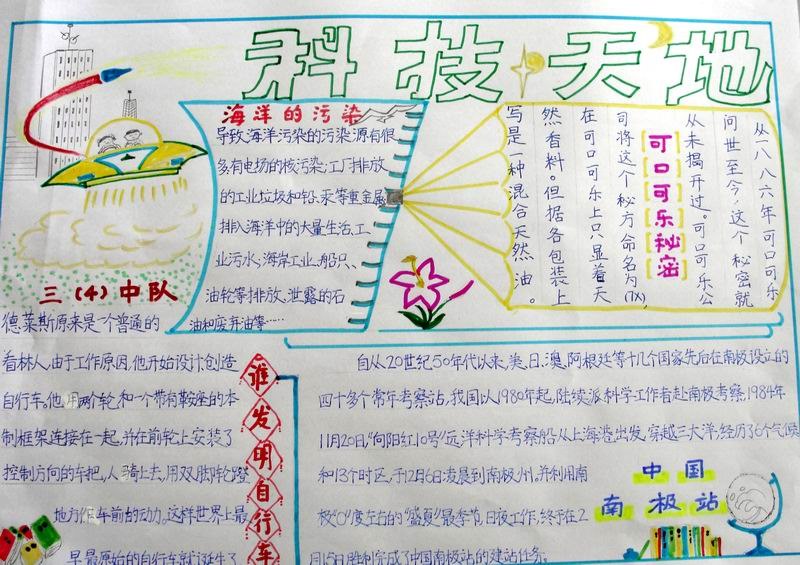 科技天地
海洋的污染
导致海洋污染的污染源有很
多有电场的核污染;工厂排放
的工业垃圾和铅、汞等重金属
排入海洋中的大量生活、工
业污水,海岸工业、船只、
油轮等排放、泄露的石
油和废弃油等……
从一八八六年可口可乐
问世至今,这个秘密就
从未揭开过。可口可乐公
可口可乐秘密
司将这个秘方命名为(7X),
在可口可乐上只显着天
然香料。但据各包装上
写是一种混合天然油。
三(4)中队
德莱斯原来是一个普通的
看林人,由于工作原因,他开始设计创造
自行车。他用两个轮和一个带有鞍座的木
制框架连接在一起,并在前轮上安装了
控制方向的车把,人骑上去,用双脚轮蹬
地方作车前的动力。这样世界上最
早最原始的自行车就诞生了
谁发明自行车
自从20世纪50年代以来,美、日、澳、阿根廷等十几个国家先后在南极设立的
四十多个常年考察站,我国以1980年起,陆续派科学工作者赴南极考察,1984年
11月20日,"向阳红10号"远洋科学考察船从上海港出发,穿越三大洋,经历6个气候
和13个时区,于12月6日凌晨到南极州,并利用南
极"0"度左右的"盛夏"最季节,日夜工作,终于在2
月15日胜利完成了中国南极站的建站任务。
中国
南极站